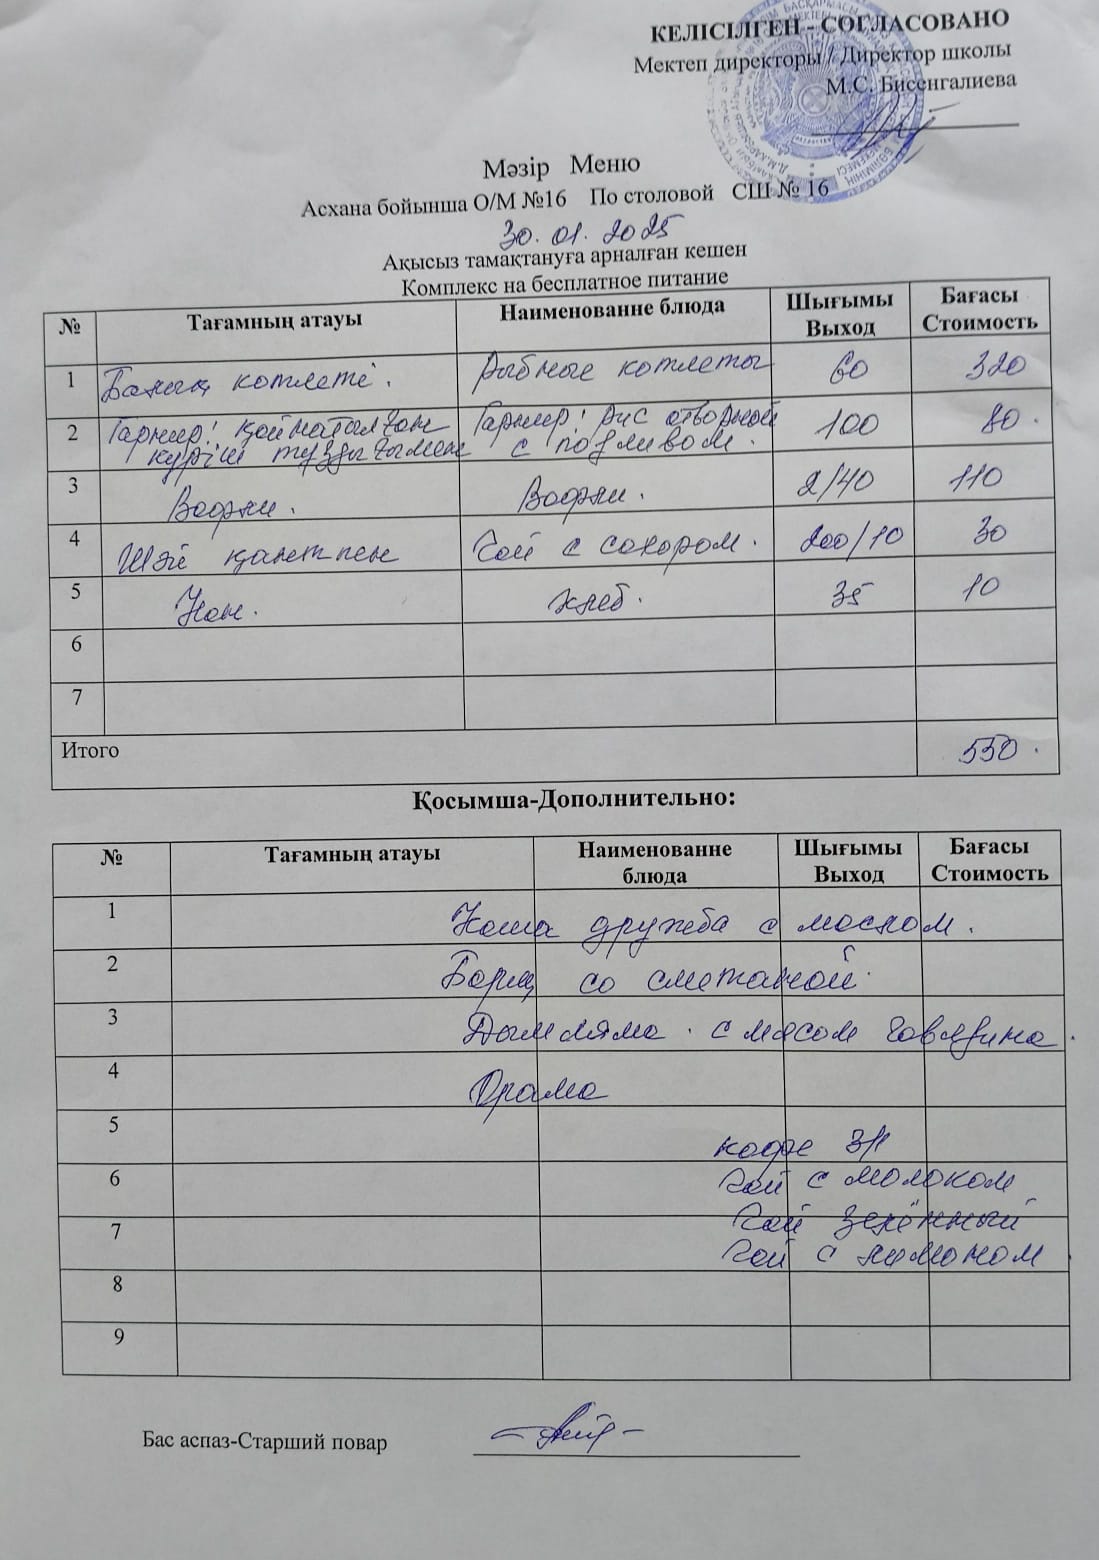 КЕЛІСІЛГЕН - СОГЛАСОВАНО
Мектеп директоры / Директор школы
М.С. Бисенгалиева
Мәзір Меню
Асхана бойынша О/М №16 По столовой СШ № 16
30.01.2025
Ақысыз тамақтануға арналған кешен
Комплекс на бесплатное питание
№ Тағамның атауы Наименованне блюда Шығымы Выход Бағасы Стоимость
1 Балық котлеті. Рыбные котлеты 60 320
2 Гарнир! қайнатылған күріш тұздығымен Гарнир! рис отворной с подливом. 100 80.
3 Вафли. Вафли. 2/40 110
4 Шәй қантпен Чай с сахаром. 200/10 30
5 Нан. хлеб. 35 10
6
7
Итого 550.
Қосымша-Дополнительно:
№ Тағамның атауы Наименованне блюда Шығымы Выход Бағасы Стоимость
1 Каша дружба с маслом.
2 Борщ со сметаной.
3 Дымляма. с мясом говядина.
4 Орама
5 кофе 3/1
6 Чай с молоком
Чай зелённый
7 Чай с лимоном.
8
9
Бас аспаз-Старший повар